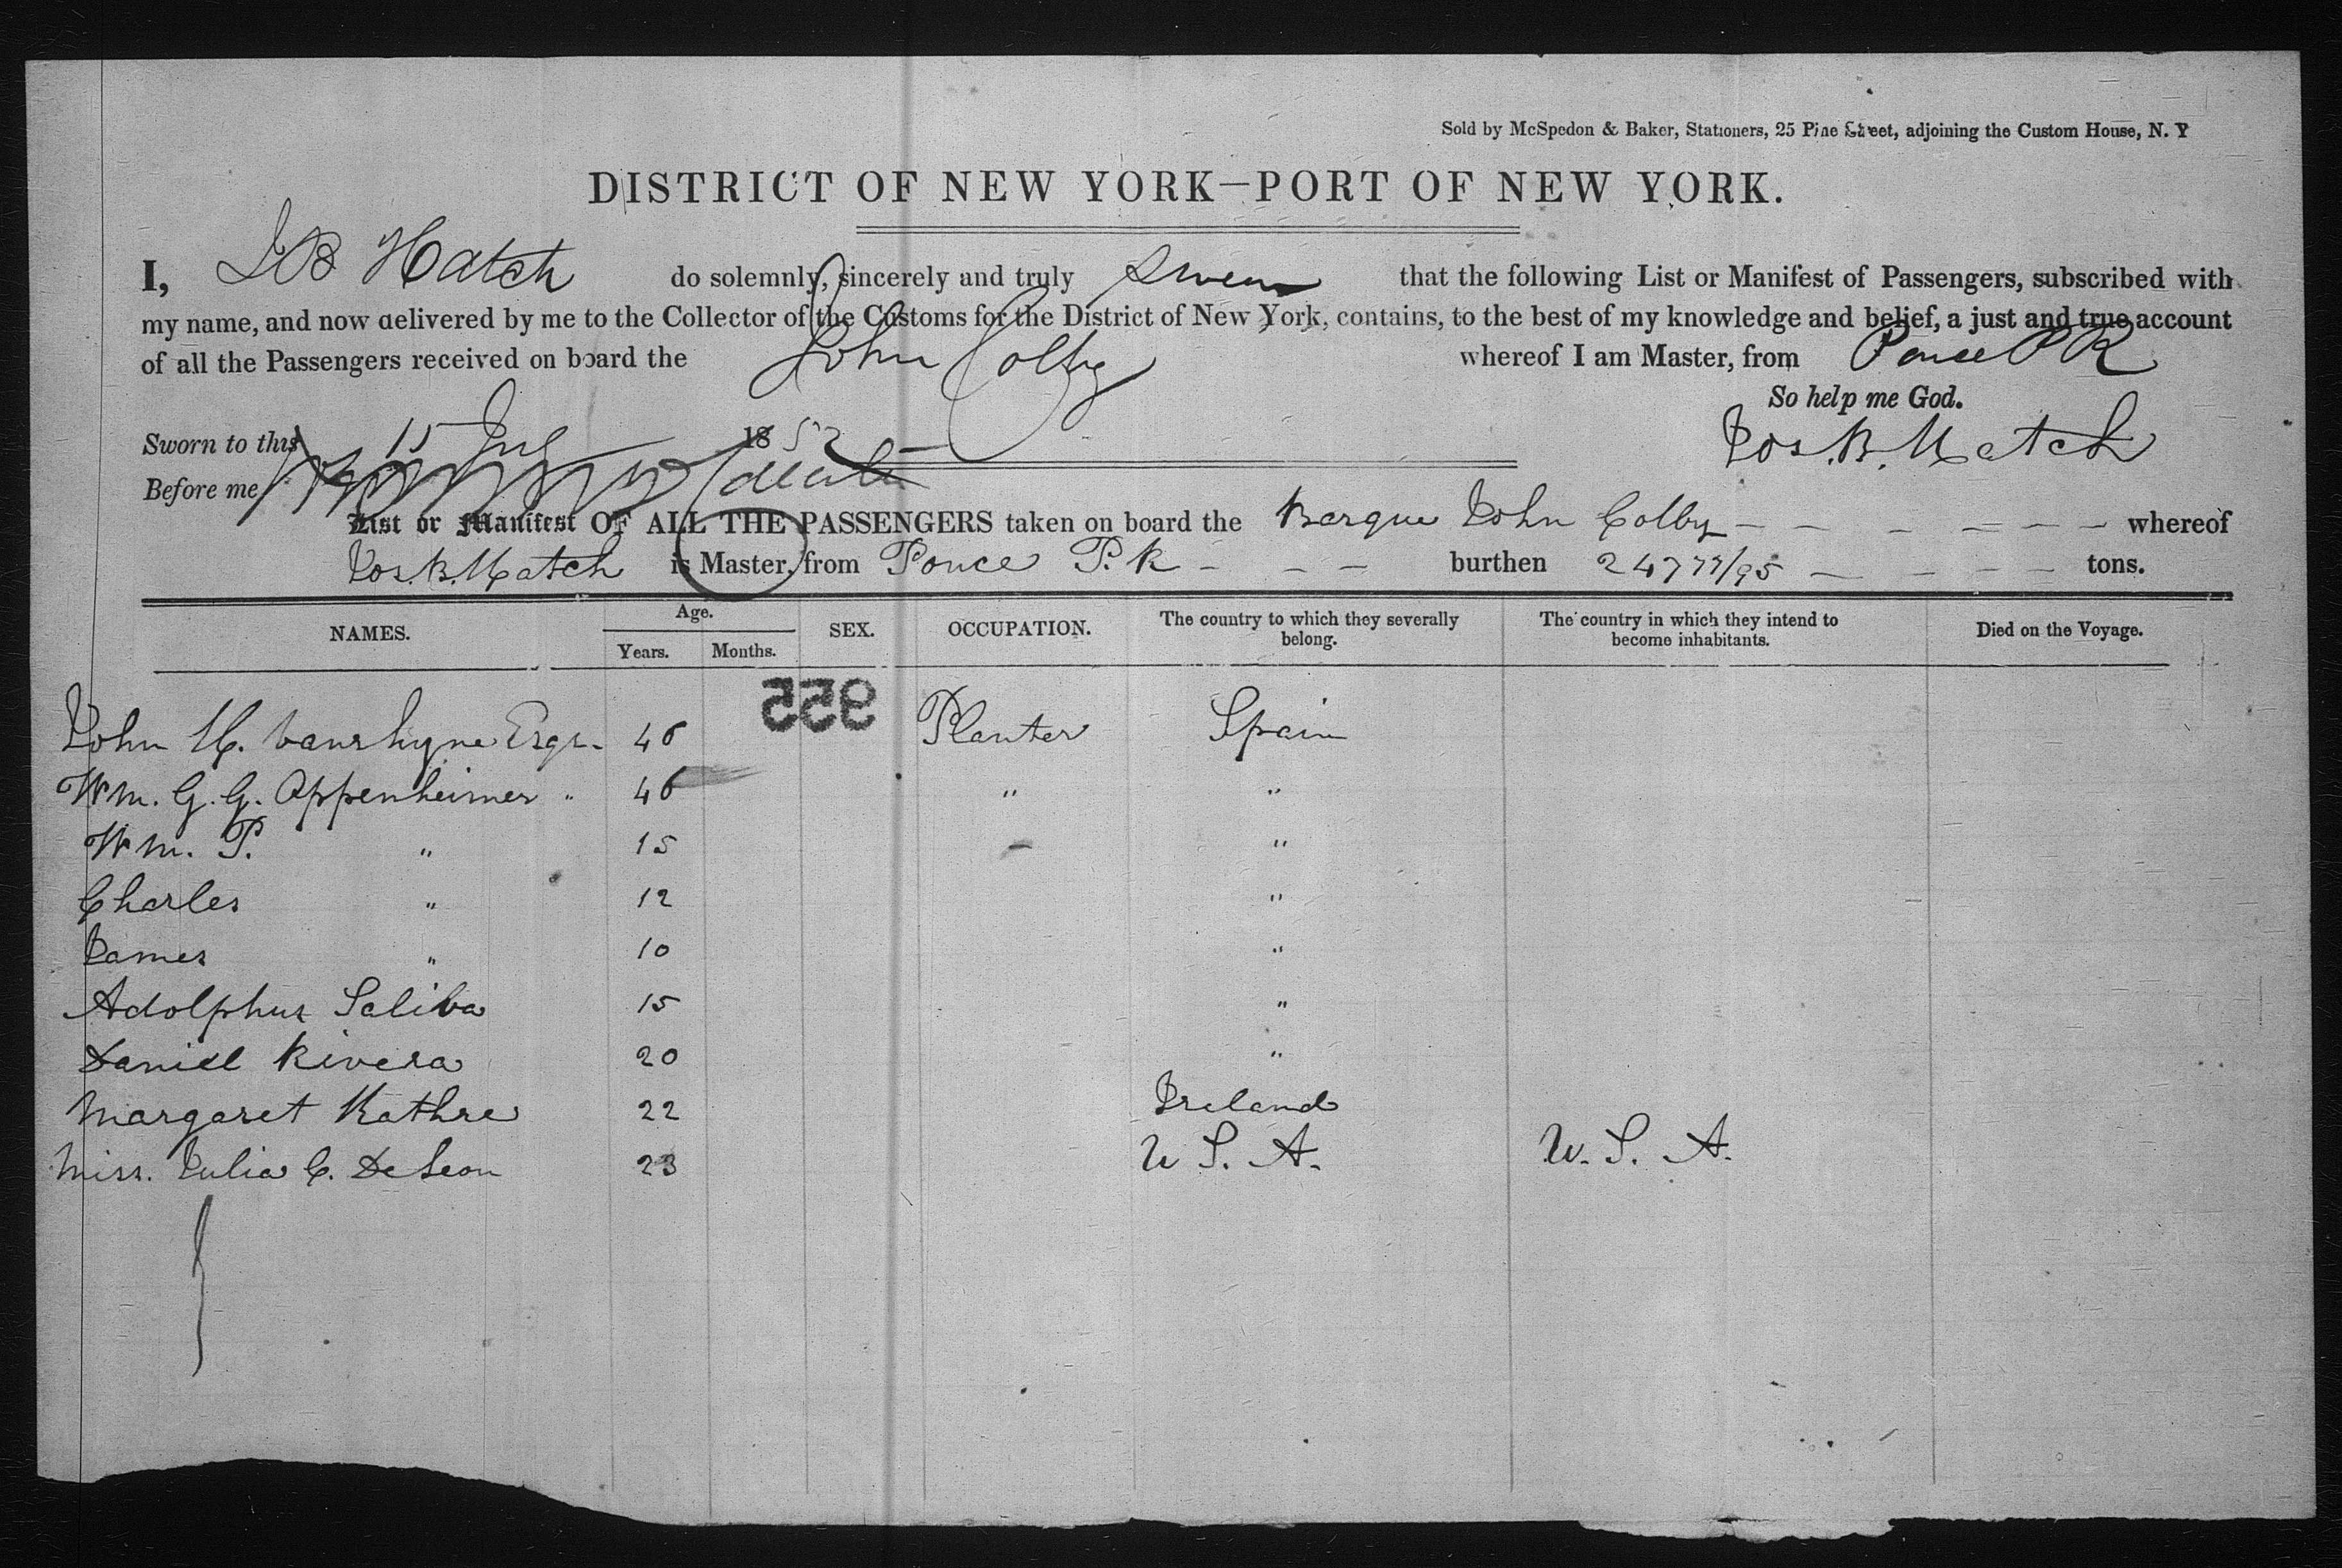 Sold by McSpedon & Baker, Stationers, 25 Pine Street, adjoining the Custom House, N. Y
DISTRICT OF NEW YORK—PORT OF NEW YORK.
I, J B Hatch do solemnly, sincerely and truly swear that the following List or Manifest of Passengers, subscribed with
my name, and now delivered by me to the Collector of the Customs for the District of New York, contains, to the best of my knowledge and belief, a just and true account
of all the Passengers received on board the John Colby whereof I am Master, from Ponce P R
So help me God.
Sworn to this 15 July 1852
Jos. B. Hatch
Before me
List or Manifest OF ALL THE PASSENGERS taken on board the Barque John Colby — — — — — — whereof
Jos. B. Hatch is Master, from Ponce P. R - - - burthen 247 77/95 — — — — tons.
NAMES. Age. Years. Months. SEX. OCCUPATION. The country to which they severally belong. The country in which they intend to become inhabitants. Died on the Voyage.
955
John H. Vanrhyne Esqr. 46 Planter Spain
Wm. G. G. Oppenheimer " 46 " "
Wm. P. " 15 – "
Charles " 12 "
James " 10 "
Adolphus Saliba 15 "
Daniel Rivera 20 "
Margaret Kathre 22 Ireland
Miss. Julia C. DeLeon 23 U S. A. U. S. A.